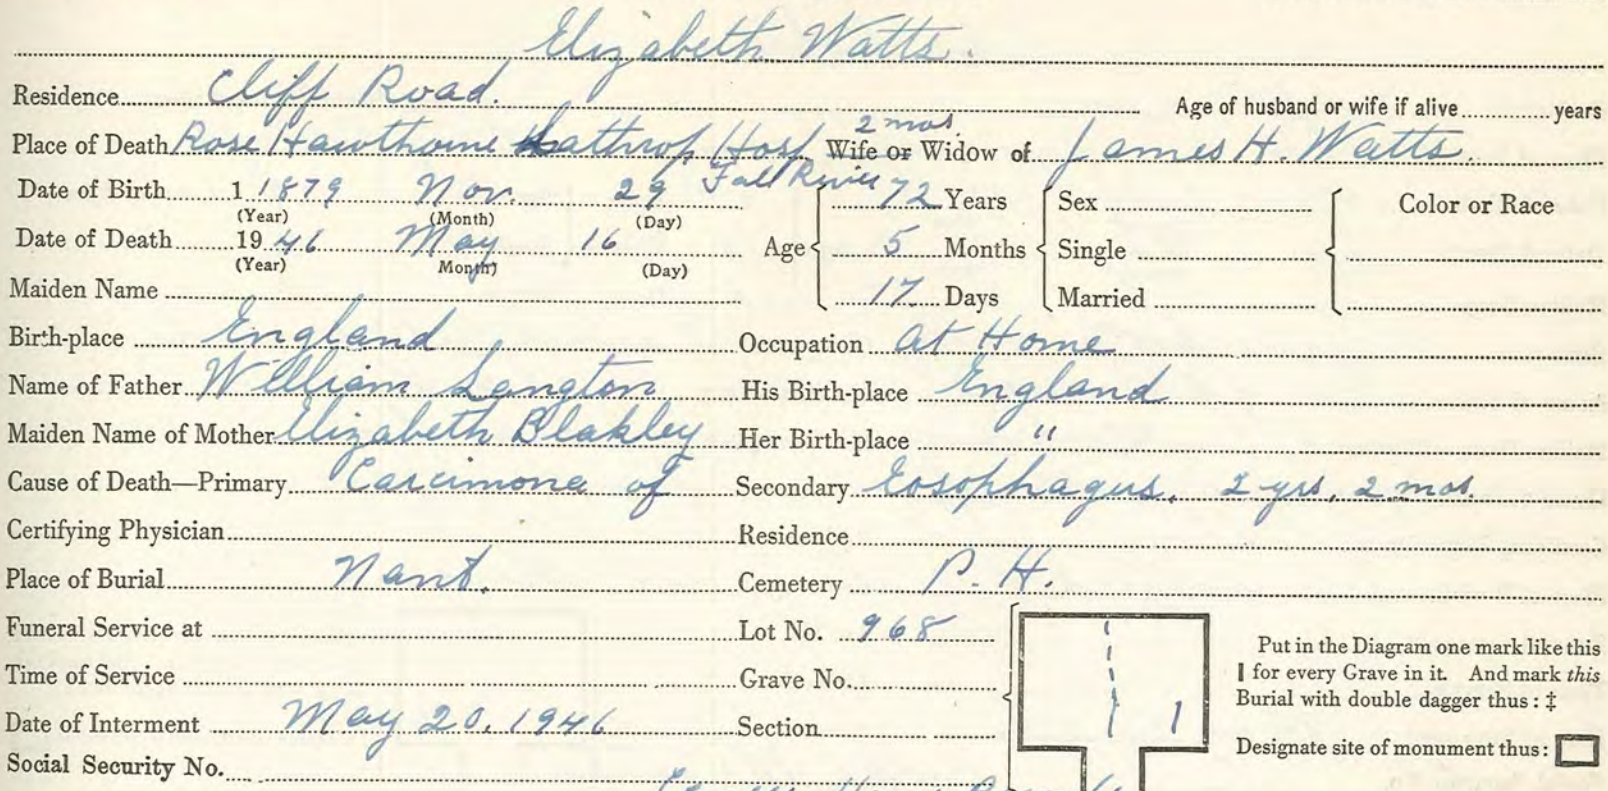 Elizabeth Watts.
Residence Cliff Road. Age of husband or wife if alive years
2 mos.
Place of Death Rose Hawthorne Lathrop Hosp Wife or Widow of James H. Watts.
Fall River
Date of Birth 1 1879 Nov. 29 72 Years Sex Color or Race
(Year) (Month) (Day)
Date of Death 19 46 May 16 Age 5 Months Single
(Year) Month) (Day)
Maiden Name 17 Days Married
Birth-place England Occupation at Home
Name of Father William Langton His Birth-place England
Maiden Name of Mother Elizabeth Blakley Her Birth-place "
Cause of Death—Primary Carcimona of Secondary Eosophagus, 2 yrs, 2 mos.
Certifying Physician Residence
Place of Burial Nant. Cemetery P. H.
Funeral Service at Lot No. 968
Time of Service Grave No.
Date of Interment May 20, 1946 Section
Social Security No.
Put in the Diagram one mark like this
| for every Grave in it. And mark this
Burial with double dagger thus : ‡
Designate site of monument thus :